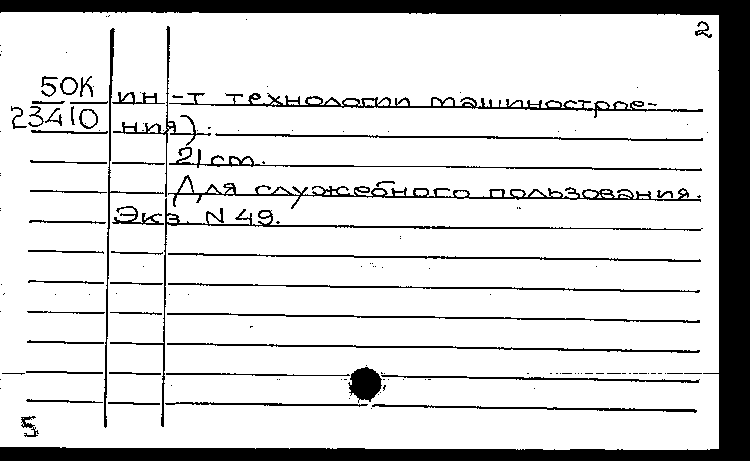 2
50К ин-т технологии машинострое-
23410 ния).
21 cm.
Для служебного пользования.
Экз. N 49.
5